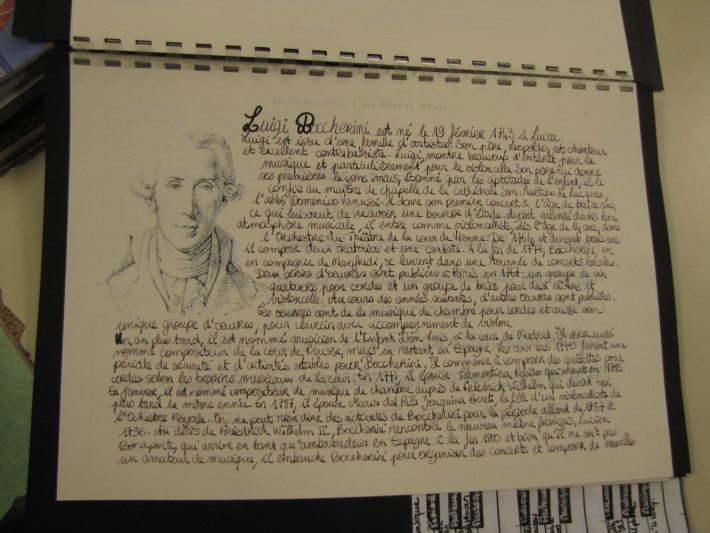 Luigi Boccherini est né le 19 février 1743 à Lucca.
Luigi est issu d'une famille d'artistes. Son père, Leopoldo, est chanteur
et excellent contrebassiste. Luigi, montre beaucoup d'intérêt pour la
musique et particulièrement pour le violoncelle. Son père lui donne
ses premières leçons mais, étonné par les aptitudes de l'enfant, il le
confie au maître de chapelle de la cathédrale San Martino de Lucques,
l'abbé Domenico Vanussi. Il donne son premier concert à l'âge de treize ans,
ce qui lui vaut de recevoir une bourse d'étude. Ayant grandi dans une
atmosphère musicale, il entre comme violoncelliste, dès l'âge de 14 ans, dans
l'Orchestre du Théâtre de la cour de Vienne. De 1764 et durant trois ans
il compose deux oratorios et une cantate. A la fin de Boccherini, en
en compagnie de Manfredi, se lancent dans une tournée de concerts locale.
Deux séries d'œuvres sont publiées à Paris en 1767: un groupe de six
quatuors pour cordes et un groupe de trios pour deux violons et
violoncelle. Au cours des années suivantes, d'autres œuvres sont publiées.
Ces œuvres sont de la musique de chambre pour cordes et aussi son
unique groupe d'œuvres, pour clavecin avec accompagnement de violon.
Un an plus tard, il est nommé musicien de l'Enfant Don Luis, à la cour de Madrid. Il sera aussi
nommé compositeur de la cour de Prusse, mais en restant en Espagne. Les années 1770 furent une
période de sécurité et d'activités stables pour Boccherini. Il commence à composer des quintettes pour
cordes selon les besoins musicaux de la cour. En 1771, il épouse Clementina Pelicho qui meurt en 1785.
En Janvier, il est nommé compositeur de musique de chambre auprès de Friedrich Wilhelm qui devint roi
plus tard la même année. En 1787, il épouse Maria del Pilar Joaquina Porreti, la fille d'un violoncelliste de
l'Ochestre Royale. On ne peut rien dire des activités de Boccherini pour la période allant de 1787 à
1796. Au décès de Friedrich Wilhelm II, Boccherini rencontre le nouveau mécène français, Lucien
Bonaparte, qui arrive en tant qu'ambassadeur en Espagne à la fin 1800 et bien qu'il ne soit pas
un amateur de musique, il embauche Boccherini pour organiser des concerts et composer de nouvelles